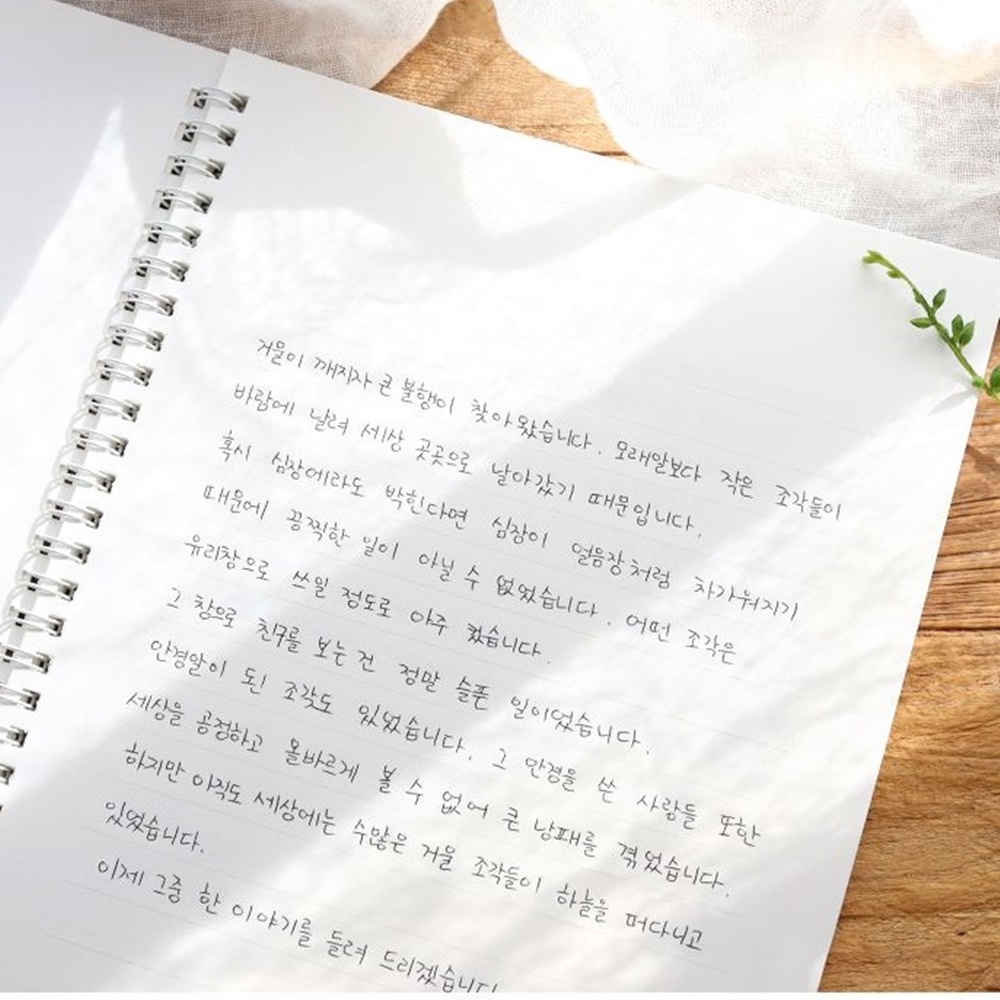 거울이 깨지자 큰 불행이 찾아왔습니다. 모래알보다 작은 조각들이
바람에 날려 세상 곳곳으로 날아갔기 때문입니다.
혹시 심장에라도 박힌다면 심장이 얼음장처럼 차가워지기
때문에 끔찍한 일이 아닐 수 없었습니다. 어떤 조각은
유리창으로 쓰일 정도로 아주 컸습니다.
그 창으로 친구를 보는 건 정말 슬픈 일이었습니다.
안경알이 된 조각도 있었습니다. 그 안경을 쓴 사람들 또한
세상을 공정하고 올바르게 볼 수 없어 큰 낭패를 겪었습니다.
하지만 아직도 세상에는 수많은 거울 조각들이 하늘을 떠다니고
있었습니다.
이제 그중 한 이야기를 들려 드리겠습니다